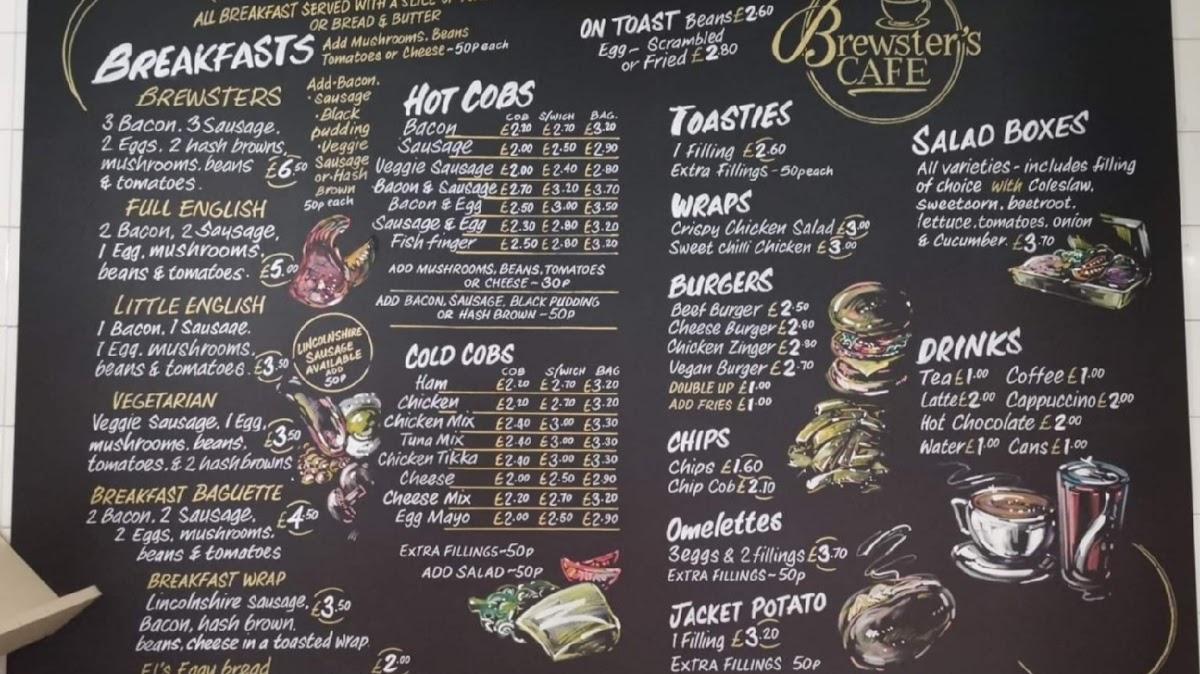 ALL BREAKFAST SERVED WITH A SLICE OF
OR BREAD & BUTTER
BREAKFASTS
Add Mushrooms. Beans
Tomatoes or Cheese ~ 50p each
BREWSTERS
3 Bacon. 3 Sausage.
2 Eggs. 2 hash browns,
mushrooms. beans £6.50
& tomatoes.
Add-Bacon.
·Sausage
·Black
pudding
·Veggie
Sausage
or·Hash
Brown
50p each
FULL ENGLISH
2 Bacon, 2 Sausage.
1 Egg. mushrooms.
beans & tomatoes. £5.00
LITTLE ENGLISH
1 Bacon. 1 Sausage.
1 Egg. mushrooms.
beans & tomatoes. £3.50
LINCOLNSHIRE
SAUSAGE
AVAILABLE
ADD
50P
VEGETARIAN
Veggie Sausage, 1 Egg.
mushrooms. beans. £3.50
tomatoes. & 2 hash browns
BREAKFAST BAGUETTE
2 Bacon. 2 Sausage. £4.50
2 Eggs, mushrooms.
beans & tomatoes
BREAKFAST WRAP
Lincolnshire Sausage. £3.50
Bacon, hash brown.
beans, cheese in a toasted wrap.
El's Eggy bread £2.00
HOT COBS
COB S/WICH BAG.
Bacon £2.20 £2.70 £3.20
Sausage £2.00 £2.50 £2.90
Veggie Sausage £2.00 £2.40 £2.80
Bacon & Sausage £2.70 £3.20 £3.70
Bacon & Egg £2.50 £3.00 £3.50
Sausage & Egg £2.30 £2.80 £3.20
Fish finger £2.50 £2.80 £3.20
ADD MUSHROOMS, BEANS, TOMATOES
OR CHEESE ~ 30P
ADD BACON, SAUSAGE, BLACK PUDDING
OR HASH BROWN ~ 50P
COLD COBS
COB S/WICH BAG
Ham £2.20 £2.70 £3.20
Chicken £2.20 £2.70 £3.20
Chicken Mix £2.40 £3.00 £3.30
Tuna Mix £2.40 £3.00 £3.30
Chicken Tikka £2.40 £3.00 £3.30
Cheese £2.00 £2.50 £2.90
Cheese Mix £2.20 £2.70 £3.20
Egg Mayo £2.00 £2.50 £2.90
EXTRA FILLINGS~50P
ADD SALAD ~50P
ON TOAST Beans £2.60
Egg - Scrambled
or Fried £2.80
TOASTIES
1 Filling £2.60
Extra Fillings - 50p each
WRAPS
Crispy Chicken Salad £3.00
Sweet chilli Chicken £3.00
BURGERS
Beef Burger £2.50
Cheese Burger £2.80
Chicken Zinger £2.80
Vegan Burger £2.70
DOUBLE UP £1.00
ADD FRIES £1.00
CHIPS
Chips £1.60
Chip Cob £2.10
Omelettes
3 eggs & 2 fillings £3.70
EXTRA FILLINGS ~ 50p
JACKET POTATO
1 Filling £3.20
EXTRA FILLINGS 50P
Brewster's
CAFE
SALAD BOXES
All varieties - includes filling
of choice with Coleslaw,
sweetcorn, beetroot.
lettuce. tomatoes. onion
& Cucumber. £3.70
DRINKS
Tea £1.00 Coffee £1.00
Latte £2.00 Cappuccino £2.00
Hot Chocolate £2.00
Water £1.00 Cans £1.00